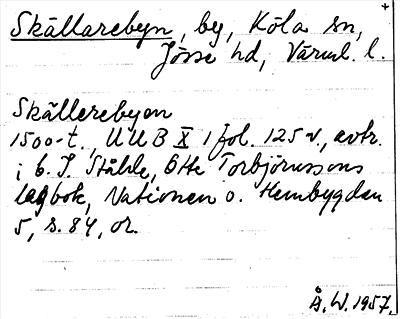 Skällarebyn, by, Köla sn,
Jösse hd, Värml. l.
Skällerebyen
1500-t., UUB X 1 fol. 125 v., avtr.
i C. I. Ståhle, Otte Torbjörnssons
lagbok, Nationen o. Hembygden
5, s. 84, or.
Å. W. 1957.